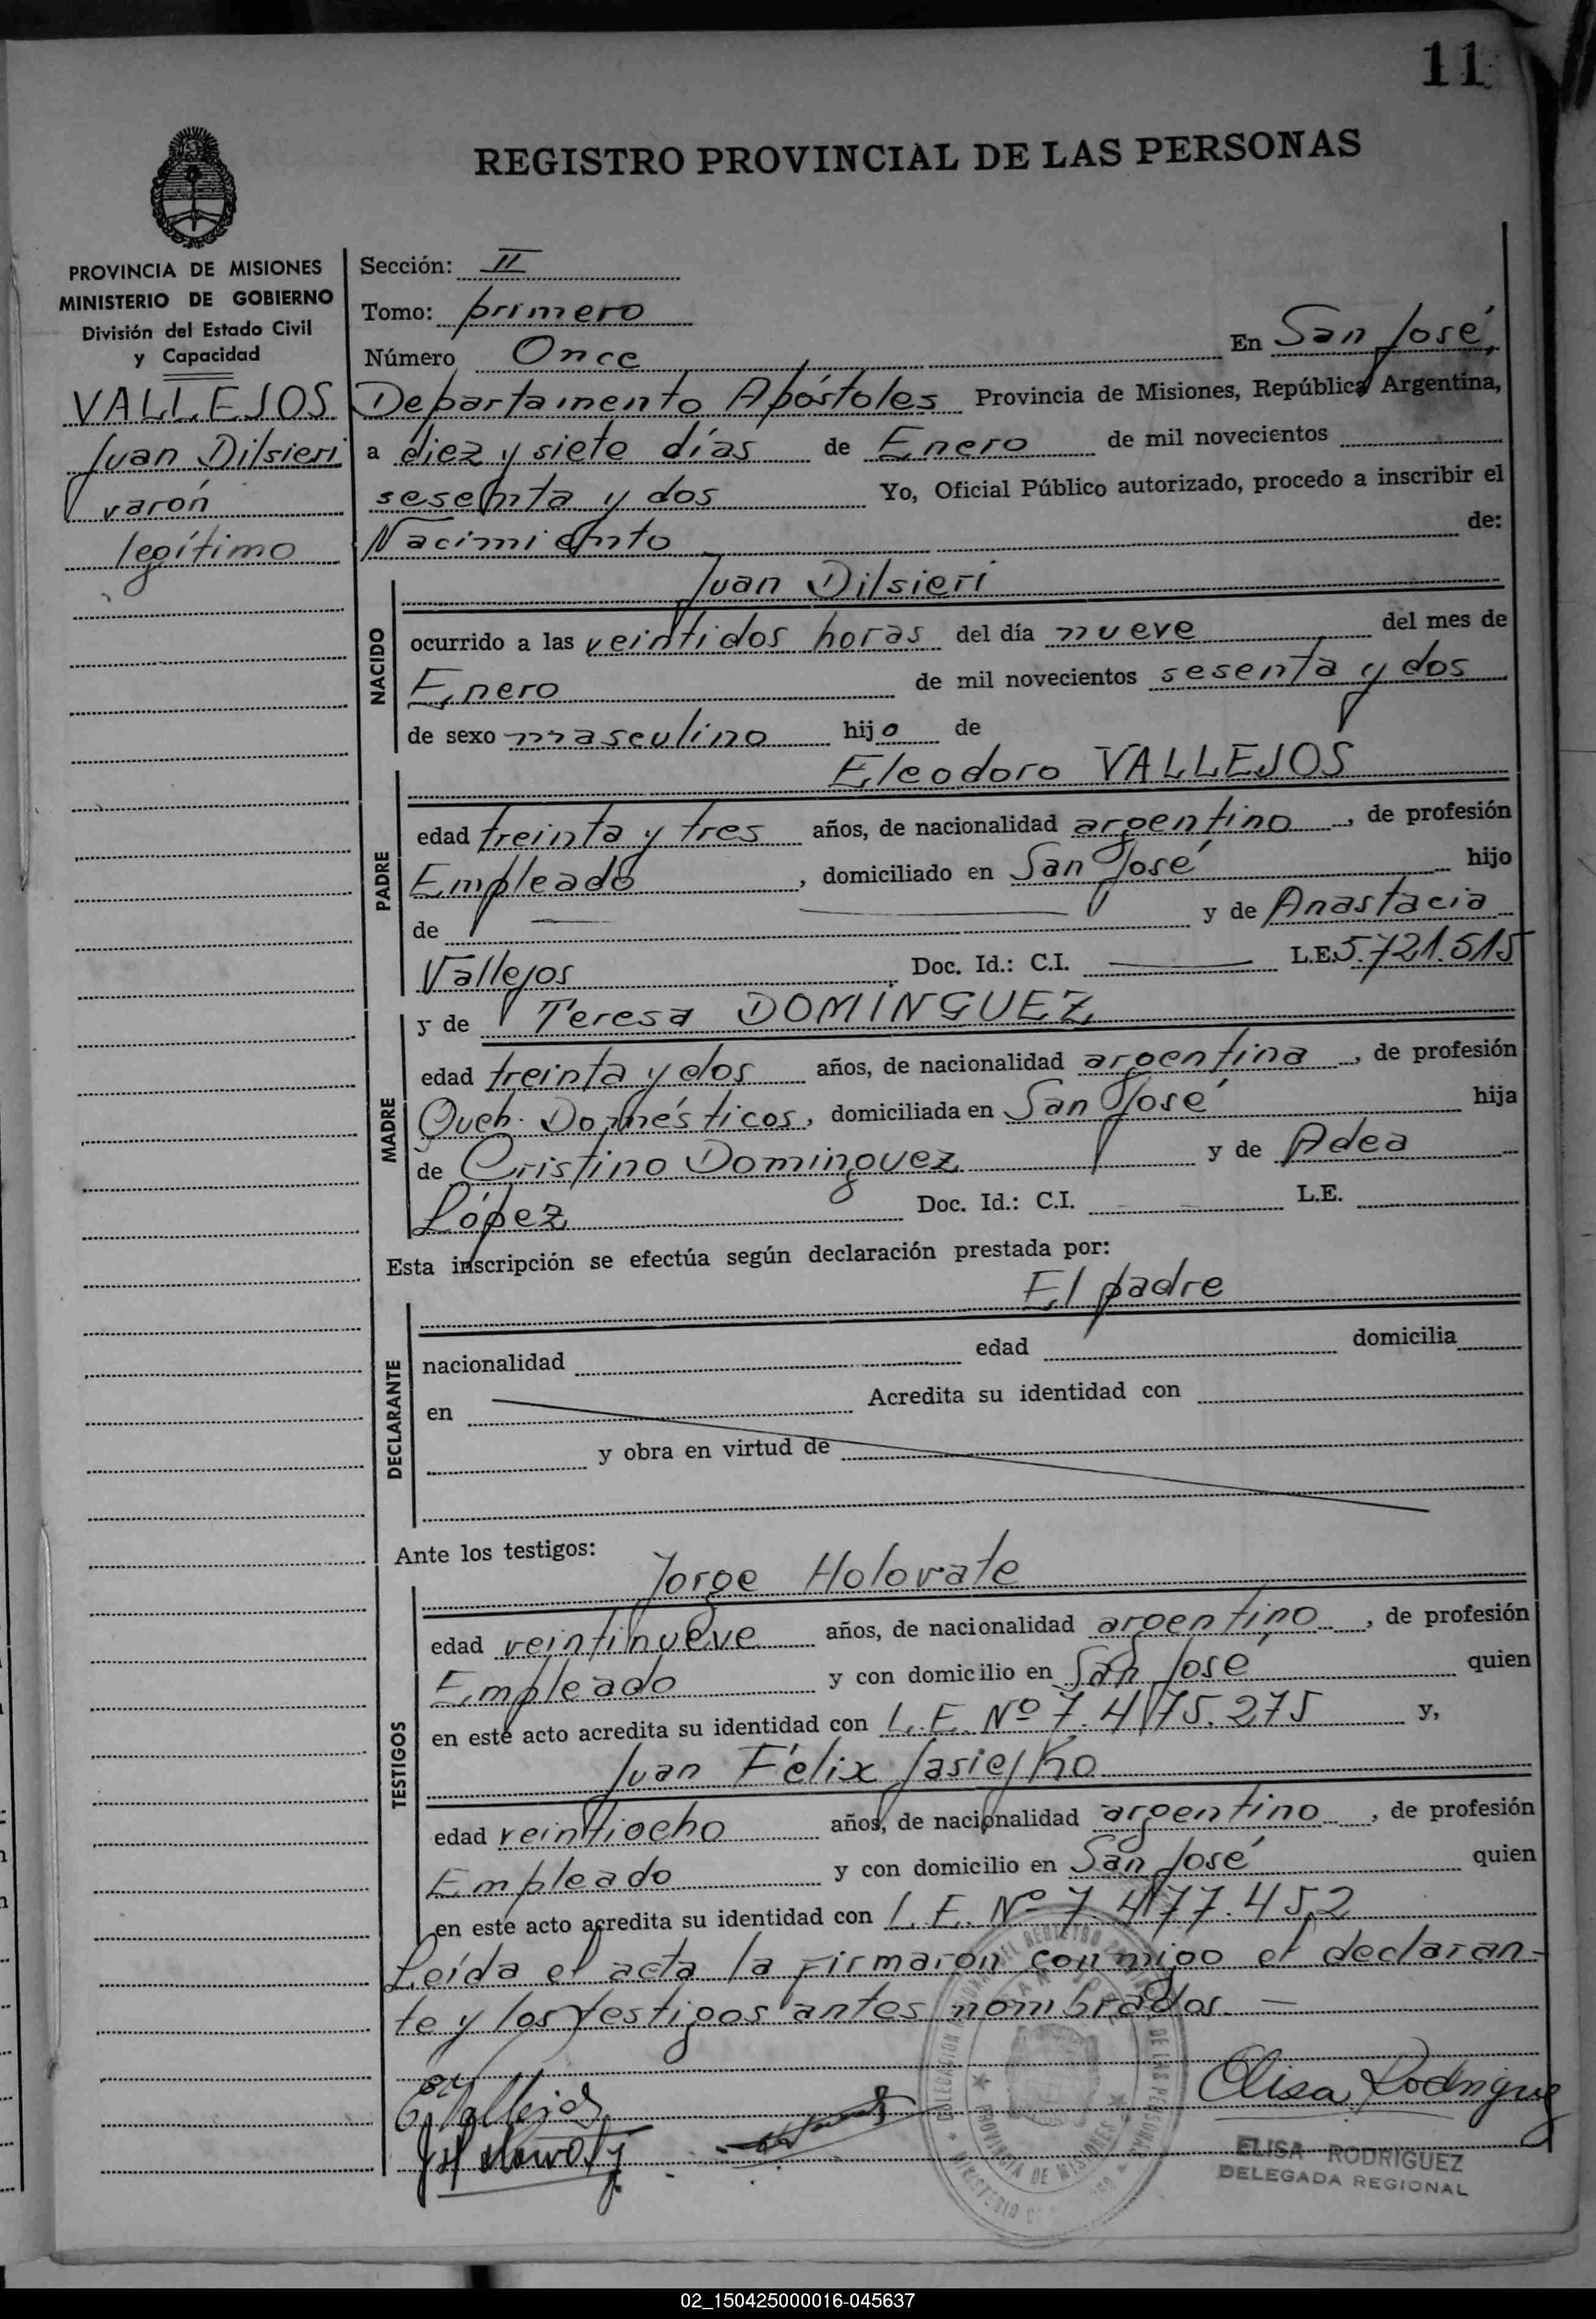 11
REGISTRO PROVINCIAL DE LAS PERSONAS
PROVINCIA DE MISIONES
MINISTERIO DE GOBIERNO
División del Estado Civil
y Capacidad
VALLEJOS
Juan Dilsieri
varón
legítimo
Sección: II
Tomo: primero
Número Once En San José,
Departamento Apóstoles Provincia de Misiones, República Argentina,
a diez y siete días de Enero de mil novecientos
sesenta y dos Yo, Oficial Público autorizado, procedo a inscribir el
Nacimiento de:
NACIDO
Juan Dilsieri
ocurrido a las veintidos horas del día nueve del mes de
Enero de mil novecientos sesenta y dos
de sexo masculino hijo de
PADRE
Eleodoro VALLEJOS
edad treinta y tres años, de nacionalidad argentino, de profesión
Empleado, domiciliado en San José hijo
de — y de Anastacia
Vallejos Doc. Id.: C.I. — L.E. 5.721.515
MADRE
y de Teresa DOMINGUEZ
edad treinta y dos años, de nacionalidad argentina, de profesión
Queh. Domésticos, domiciliada en San José hija
de Cristino Dominguez y de Adea
López Doc. Id.: C.I. L.E.
Esta inscripción se efectúa según declaración prestada por:
DECLARANTE
El padre
nacionalidad edad domicilia
en Acredita su identidad con
y obra en virtud de
Ante los testigos:
TESTIGOS
Jorge Holovate
edad veintinueve años, de nacionalidad argentino, de profesión
Empleado y con domicilio en San José quien
en este acto acredita su identidad con L.E. Nº 7.475.275 y,
Juan Félix Jasiejko
edad veintiocho años, de nacionalidad argentino, de profesión
Empleado y con domicilio en San José quien
en este acto acredita su identidad con L.E. Nº 7.477.452
Leída el acta la firmaron conmigo el declaran-
te y los testigos antes nombrados. —
E Vallejos
Elisa Rodriguez
ELISA RODRIGUEZ
DELEGADA REGIONAL
02_150425000016-045637